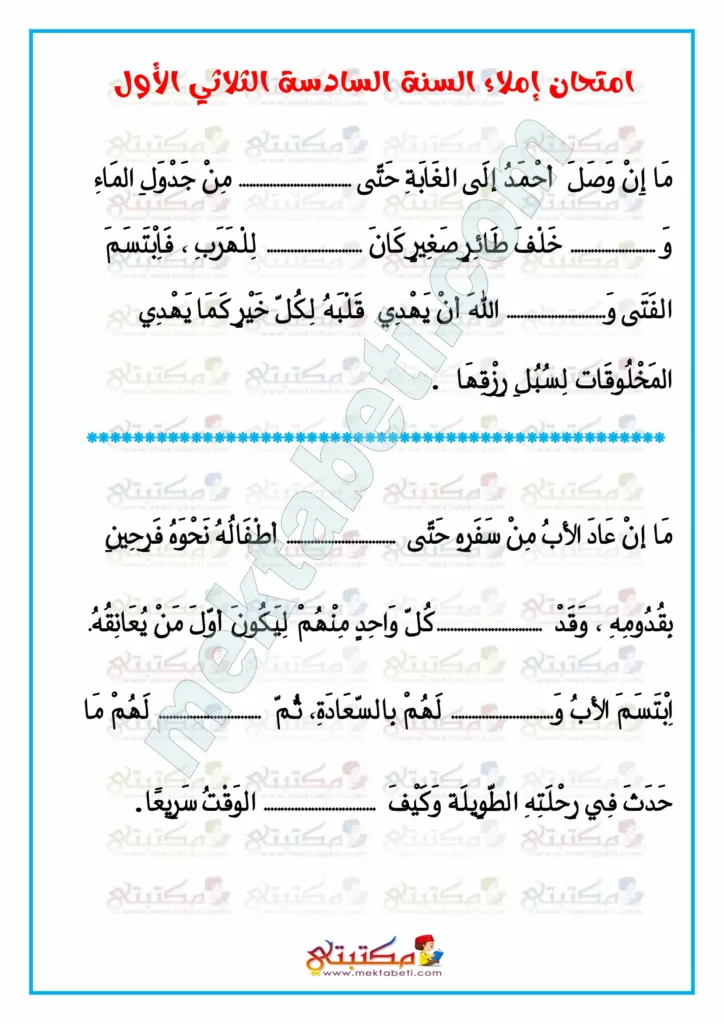 امتحان إملاء السنة السادسة الثلاثي الأول
مَا إِنْ وَصَلَ أحْمَدُ إلَى الغَابَةِ حَتّى .............................. مِنْ جَدْوَلِ المَاءِ
وَ........................ خَلْفَ طَائِرٍ صَغِيرٍ كَانَ .......................... لِلْهَرَبِ ، فَاِبْتَسَمَ
الفَتَى وَ........................... اللهَ أنْ يَهْدِي قَلْبَهُ لِكُلّ خَيْرٍ كَمَا يَهْدِي
المَخْلُوقَات لِسُبُلِ رِزْقِهَا .
************************************************
مَا إنْ عَادَ الأبُ مِنْ سَفَرِهِ حَتّى .............................. أطْفَالُهُ نَحْوَهُ فَرِحِينِ
بِقُدُومِهِ ، وَقَدْ .............................كُلّ وَاحِدٍ مِنْهُمْ لِيَكُونَ أوّلَ مَنْ يُعَانِقُهُ.
اِبْتَسَمَ الأبُ وَ............................ لَهُمْ بِالسّعَادَةِ، ثُمّ ............................ لَهُمْ مَا
حَدَثَ فِي رِحْلَتِهِ الطّوِيلَة وَكَيْفَ .............................. الوَقْتُ سَرِيعًا.
مكتبتي
www.mektabeti.com
mektabeti.com